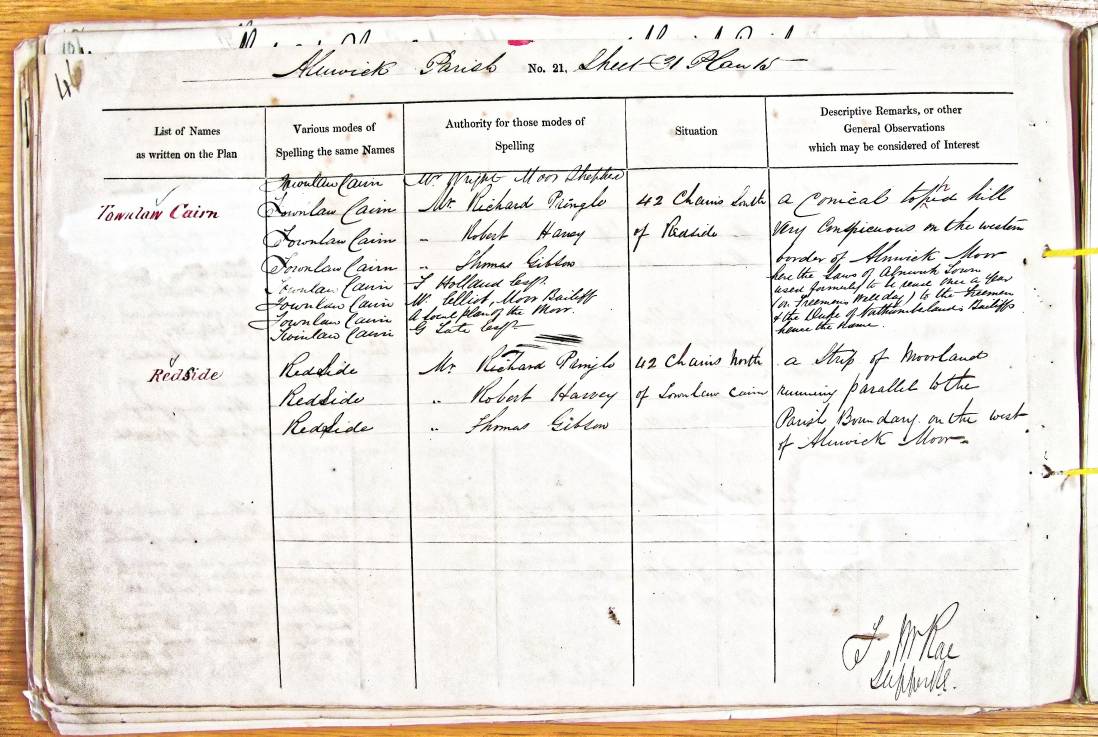 46
Alnwick Parish No. 21. Sheet 31 Plan 15
List of Names
as written on the Plan
Various modes of
Spelling the same Names
Authority for those modes of
Spelling
Situation
Descriptive Remarks, or other
General Observations
which may be considered of Interest
Townlaw Cairn
Townlaw Cairn
Townlaw Cairn
Townlaw Cairn
Townlaw Cairn
Townlaw Cairn
Townlaw Cairn
Townlaw Cairn
Twinlaw Cairn
Mr. Wright Moor Shepherd
Mr. Richard Pringle
" Robert Harvey
" Thomas Gibson
Holland Esqr.
W. Elliot, Moor Bailiff
A local plan of the Moor.
G Tate Esqr
42 Chains South
of Redside
a Conical topped hill
very Conspicuous on the western
border of Alnwick Moor
here the Laws of Alnwick Town
used formerly to be read once a year
(on Freemens Well day) to the Freemen
& the Duke of Northumberland's Bailiffs
hence the Name.
RedSide
Redside
Redside
Redside
Mr. Richard Pringle
" Robert Harvey
" Thomas Gibson
42 Chains North
of Townlaw Cairn
a Strip of Moorland
running parallel to the
Parish Boundary on the west
of Alnwick Moor
McRae
Sapper RE.